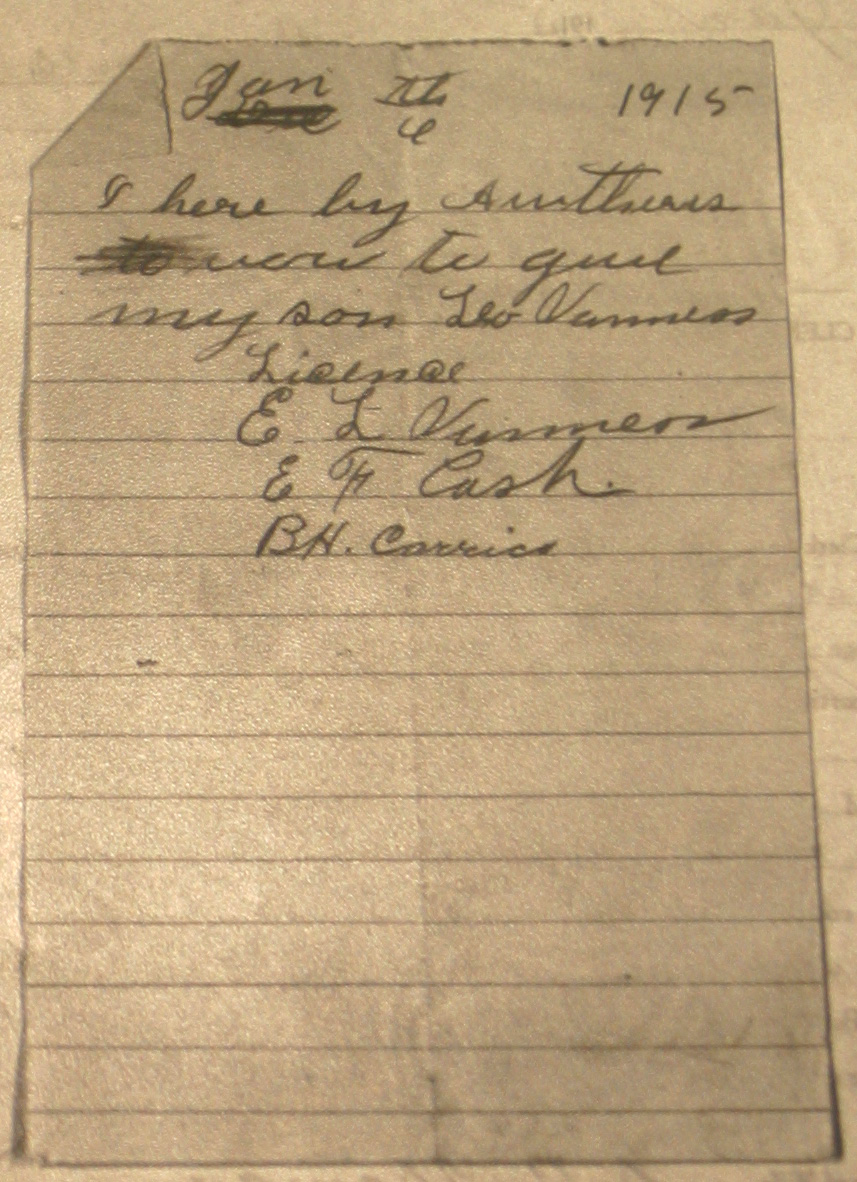 Jan 6th 1915
I here by Authuris
you to give
my son Leo Vanness
Licence
E. L Vanness
E F Cash.
B.H. Carrico